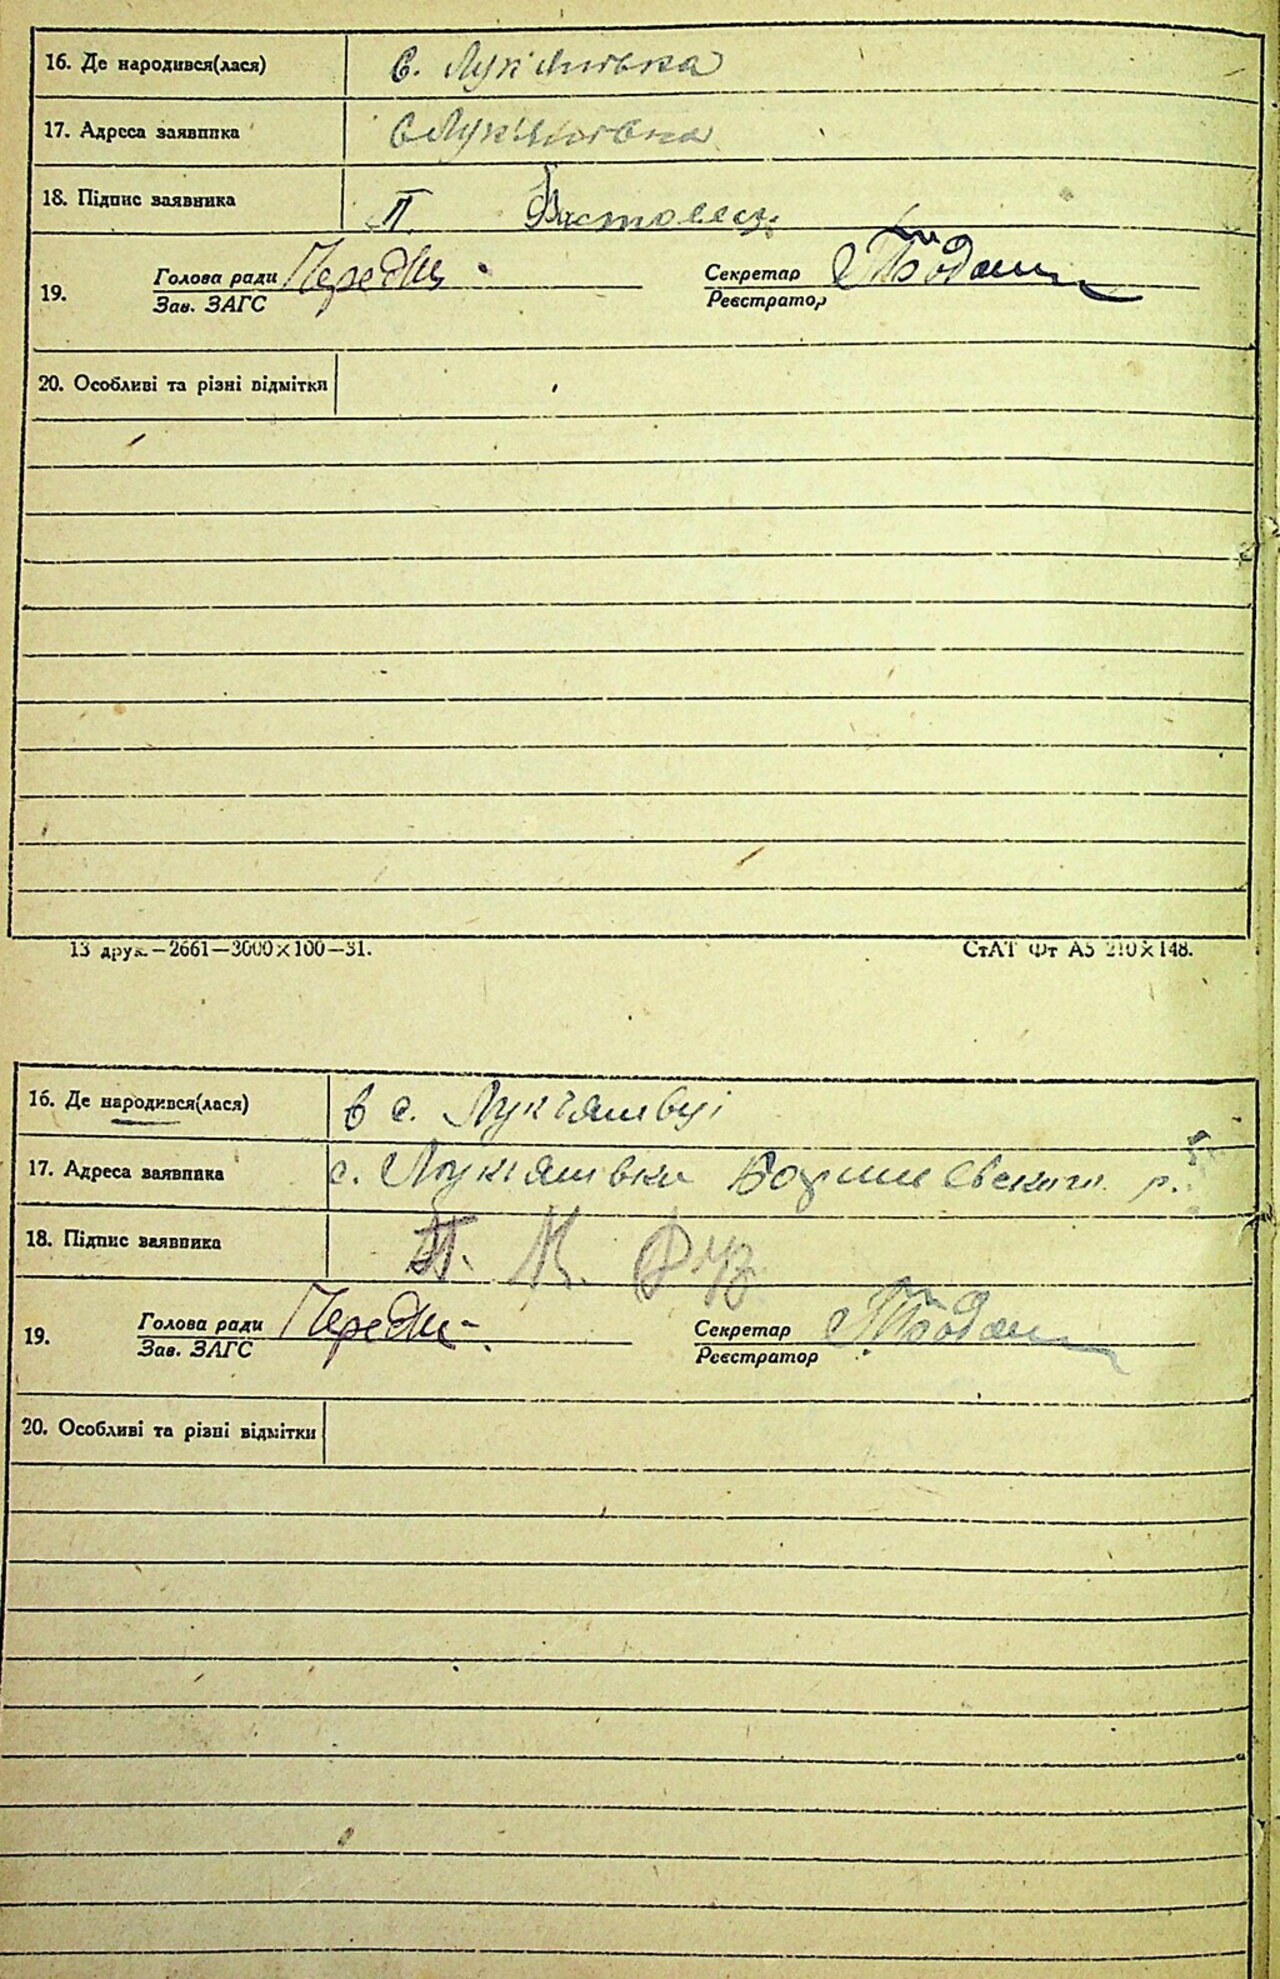 16. Де народився(лася) с. Лук'янівка
17. Адреса заявника с Лук'янівка
18. Підпис заявника П.
19. Голова ради Секретар
Зав. ЗАГС Реєстратор
20. Особливі та різні відмітки
13 друк.—2661—3000×100—31. СтАТ Фт А5 210×148.
16. Де народився(лася) в с. Лук'янівці
17. Адреса заявника с. Лук'янівка р.
18. Підпис заявника
19. Голова ради Секретар
Зав. ЗАГС Реєстратор
20. Особливі та різні відмітки